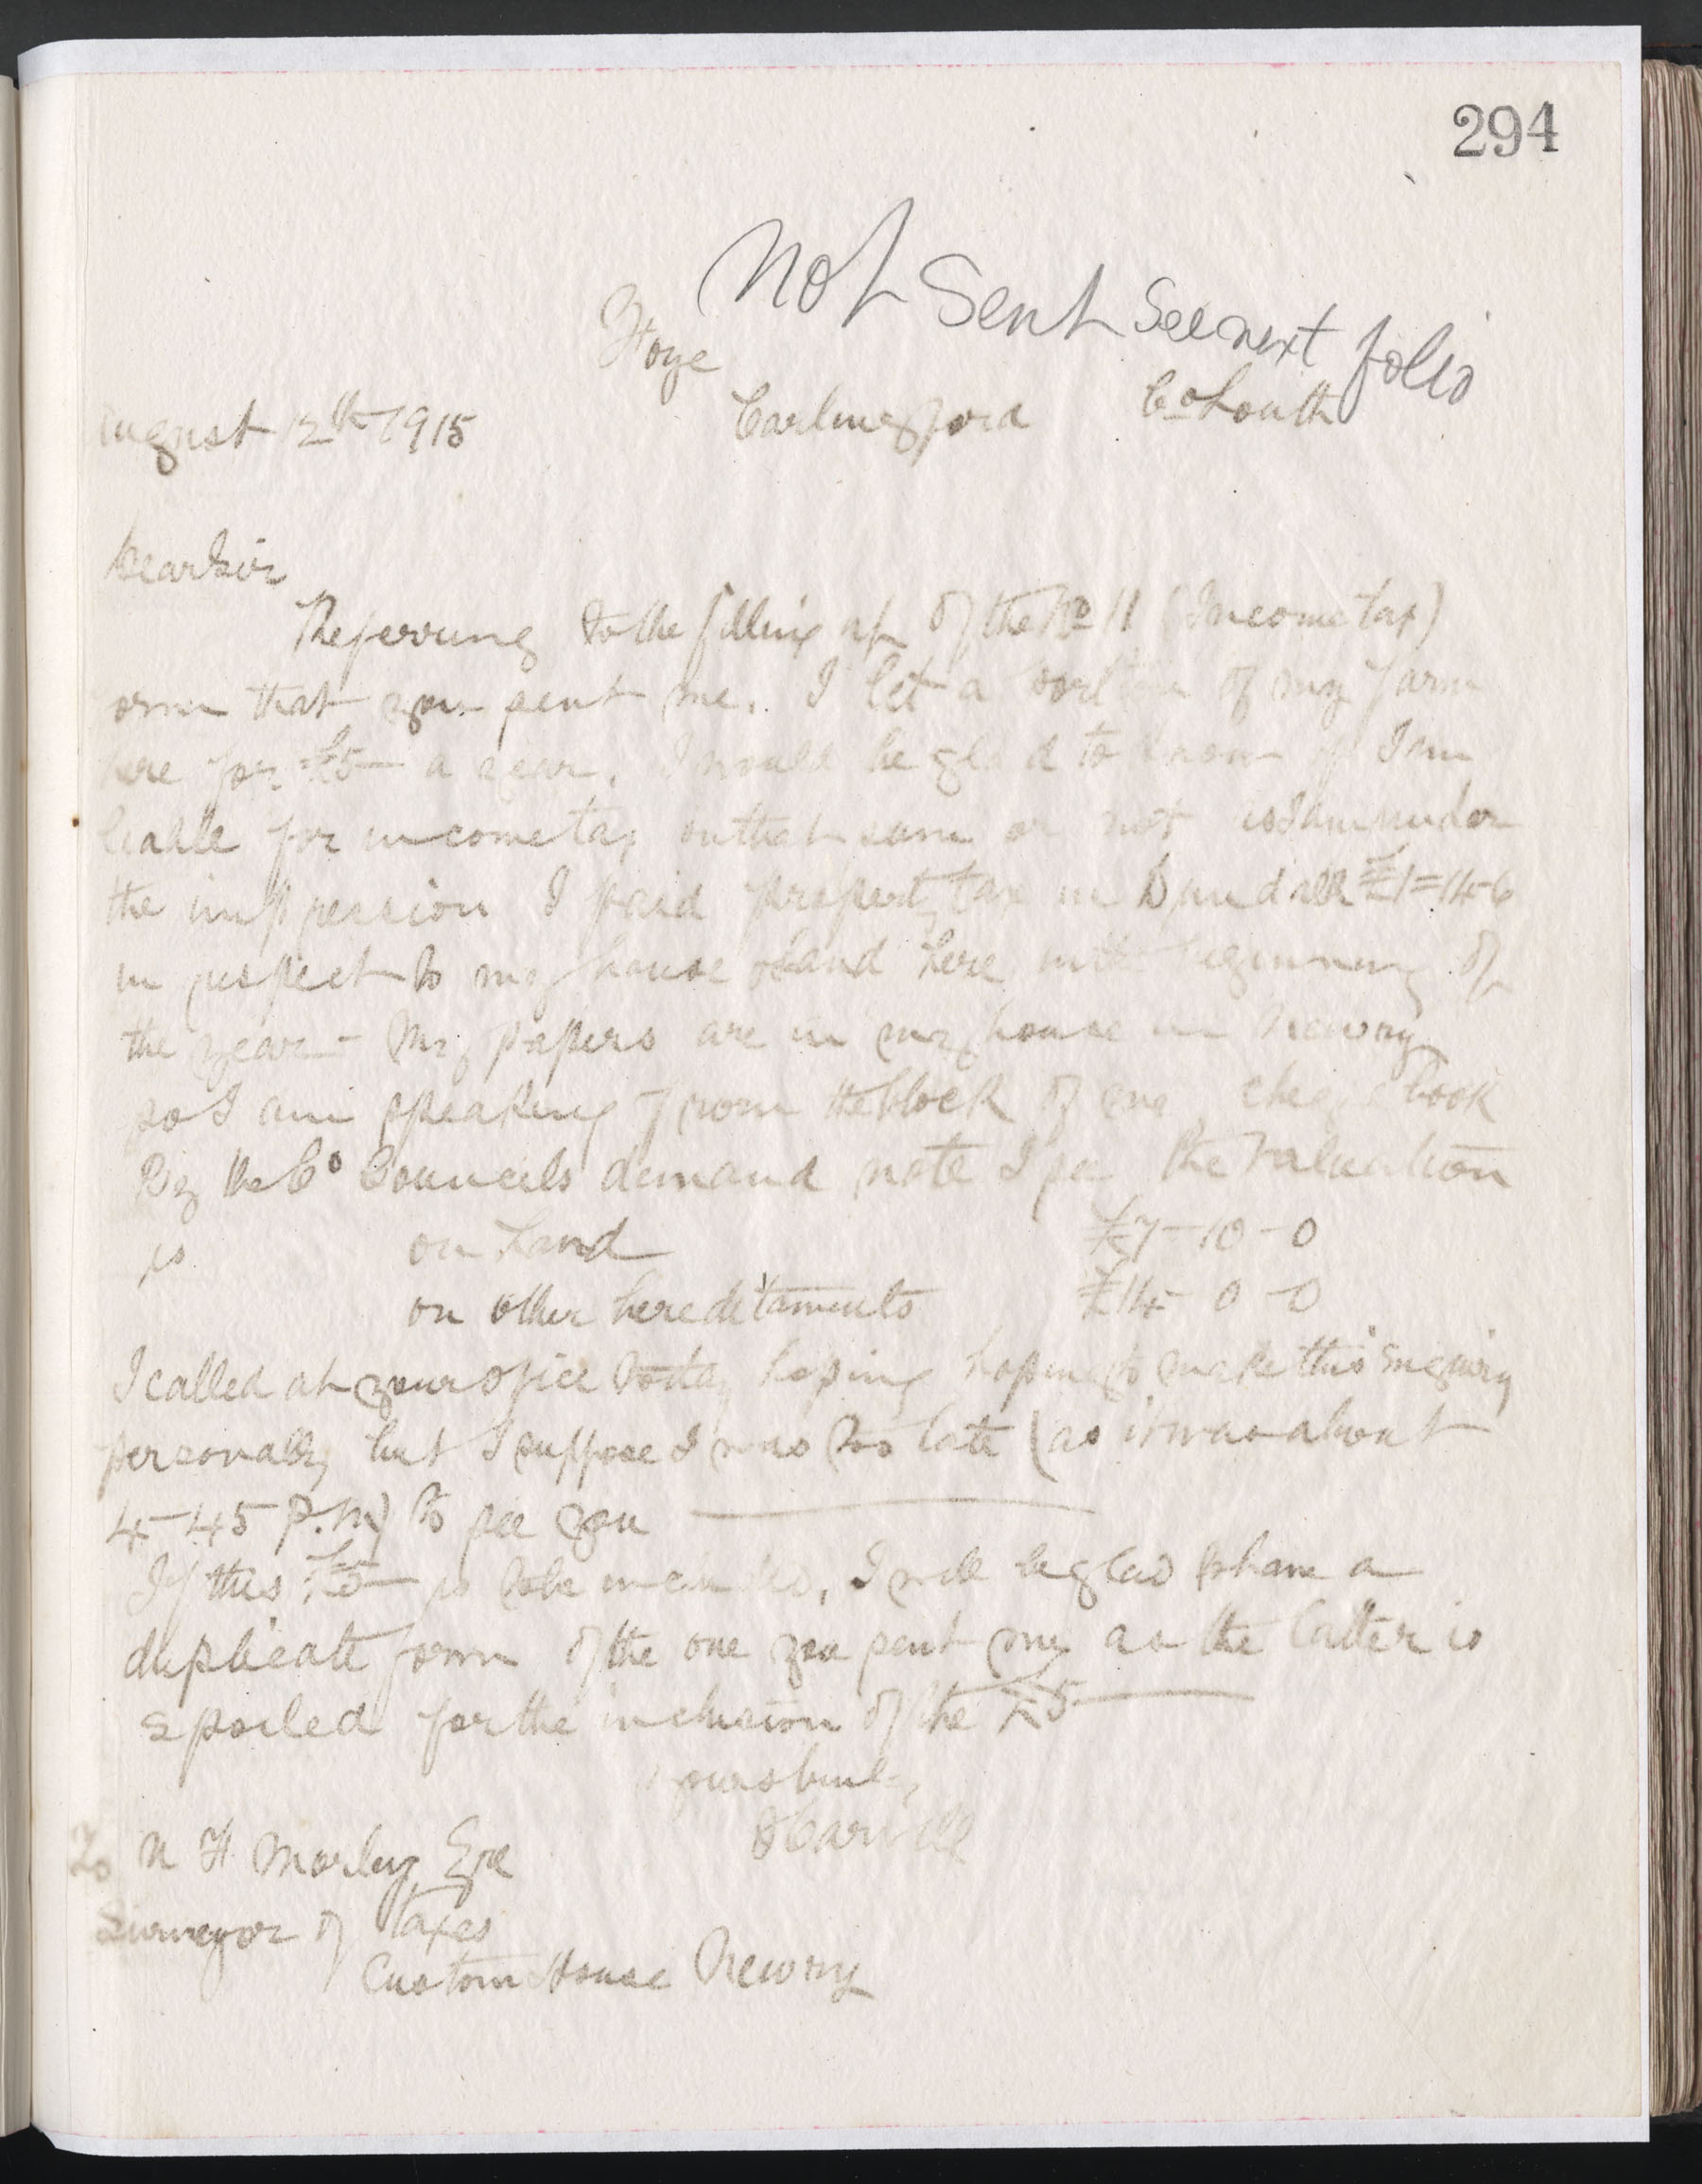 294
Not Sent See next folio
Foye
Carlingford Co Louth
August 12th 1915
Dear Sir
Referring to the filling up of the No 11 (Income tax)
orm that you sent me. I let a portion of my farm
here for £5 — a year. I would be glad to know if I am
liable for income tax on that sum or not as I am under
the impression I paid property tax in Dundalk £1=14-6
in respect to my house & land here in the beginning of
the year — My papers are in my house in Newry
so I am speaking from the block of my cheque book
By the Co Councils demand note I see the Valuation
is on Land £7-10-0
on other hereditaments £14-0-0
I called at your office today hoping hoping to make this Inquiry
personally but I suppose I was too late (as it was about
4-45 P.M) to see you —
If this £5 — is to be included, I will be glad to have a
duplicate form of the one you sent me as the latter is
spoiled for the inclusion of the £5 —
Yours truly,
D Carvill
To N H Morley Esq
Surveyor of Taxes
Custom House Newry